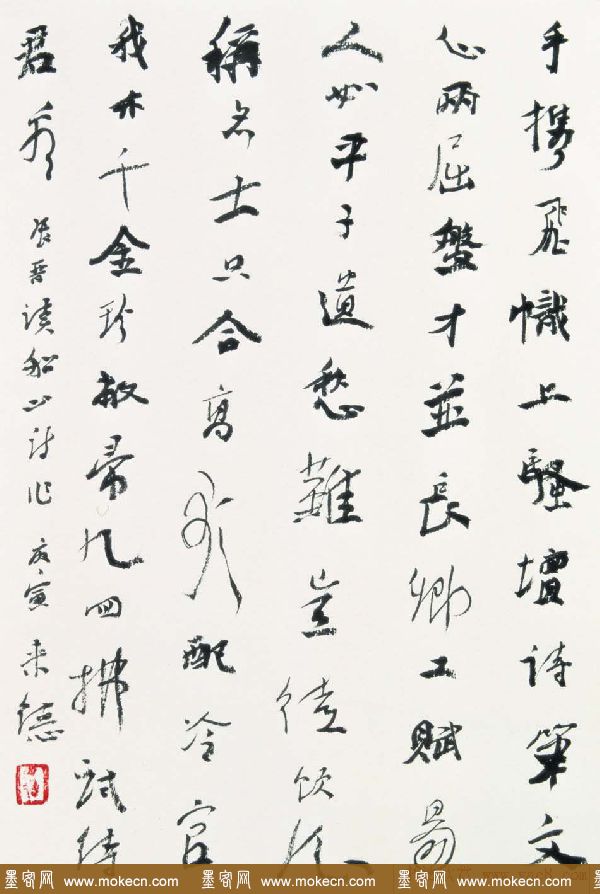 手携飛幟上騷壇詩筆文
心兩屈盤才並長卿工賦易
人如平子遣愁難豈徒
稱名士只合高歌配冷官
我亦千金珍敝帚几回拂拭待
君看
張晉讀船山詩作 寅 来德
墨客网 www.mokecn.com 墨客网 www.mokecn.com 墨客网 www.mokecn.com